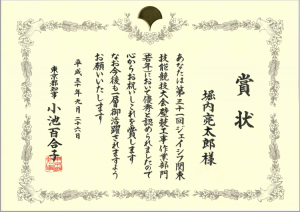 賞状
堀内亮太郎様
あなたは第三十一回ジェイシフ関東
技能競技大会壁装工事作業部門
(若年)において優秀と認められましたので
心からお祝いしこれを賞します
なお今後も一層御活躍されますよう
お願いいたします
平成三十年九月二十六日
東京都知事 小池百合子